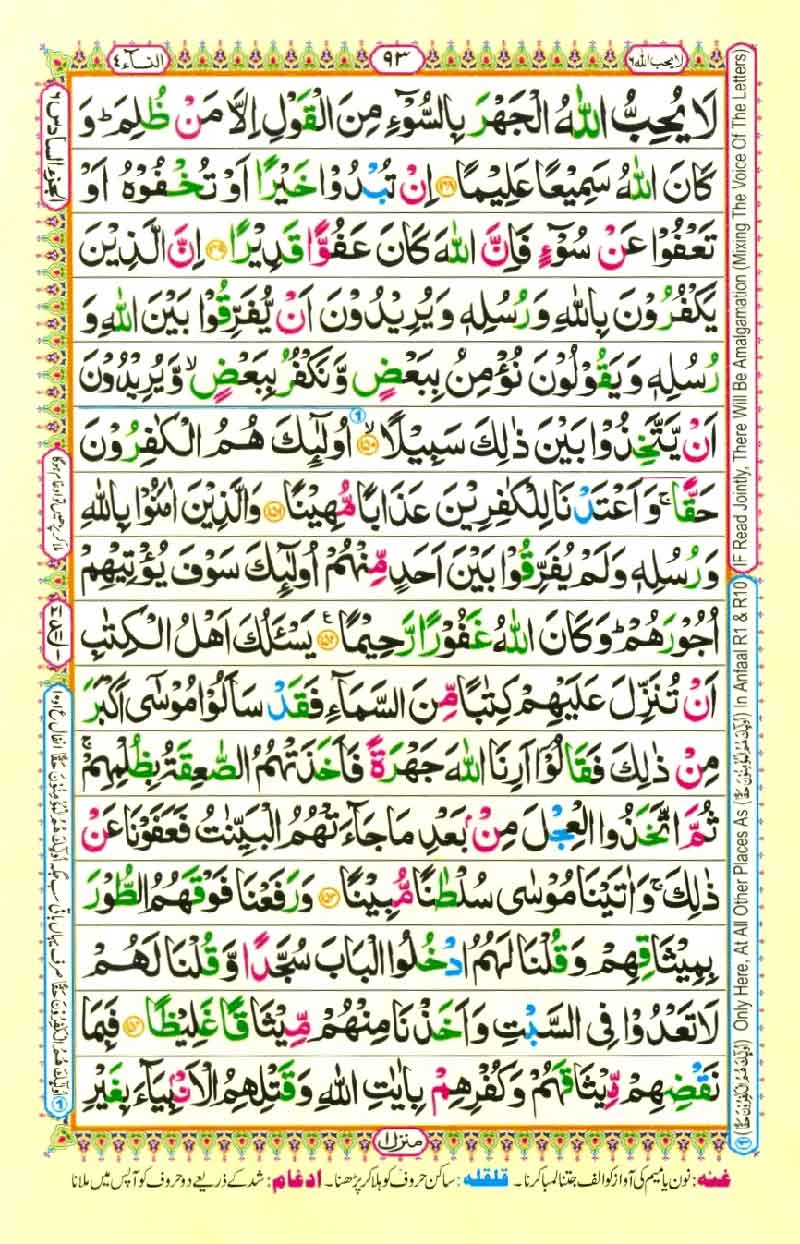 لا یحب اللہ ۶
۹۳
النساء ۴
لَا یُحِبُّ اللّٰهُ الْجَهْرَ بِالسُّوْٓءِ مِنَ الْقَوْلِ اِلَّا مَنْ ظُلِمَ ؕ وَ
كَانَ اللّٰهُ سَمِیْعًا عَلِیْمًا ﴿۱۴۸﴾ اِنْ تُبْدُوْا خَیْرًا اَوْ تُخْفُوْهُ اَوْ
تَعْفُوْا عَنْ سُوْٓءٍ فَاِنَّ اللّٰهَ كَانَ عَفُوًّا قَدِیْرًا ﴿۱۴۹﴾ اِنَّ الَّذِیْنَ
یَكْفُرُوْنَ بِاللّٰهِ وَ رُسُلِهٖ وَ یُرِیْدُوْنَ اَنْ یُّفَرِّقُوْا بَیْنَ اللّٰهِ وَ
رُسُلِهٖ وَ یَقُوْلُوْنَ نُؤْمِنُ بِبَعْضٍ وَّ نَكْفُرُ بِبَعْضٍ ۙ وَّ یُرِیْدُوْنَ
اَنْ یَّتَّخِذُوْا بَیْنَ ذٰلِكَ سَبِیْلًا ۙ﴿۱۵۰﴾ اُولٰٓىِٕكَ هُمُ الْكٰفِرُوْنَ
حَقًّا ۚ وَ اَعْتَدْنَا لِلْكٰفِرِیْنَ عَذَابًا مُّهِیْنًا ﴿۱۵۱﴾ وَ الَّذِیْنَ اٰمَنُوْا بِاللّٰهِ
وَ رُسُلِهٖ وَ لَمْ یُفَرِّقُوْا بَیْنَ اَحَدٍ مِّنْهُمْ اُولٰٓىِٕكَ سَوْفَ یُؤْتِیْهِمْ
اُجُوْرَهُمْ ؕ وَ كَانَ اللّٰهُ غَفُوْرًا رَّحِیْمًا ﴿۱۵۲﴾ یَسْـَٔلُكَ اَهْلُ الْكِتٰبِ
اَنْ تُنَزِّلَ عَلَیْهِمْ كِتٰبًا مِّنَ السَّمَآءِ فَقَدْ سَاَلُوْا مُوْسٰۤى اَكْبَرَ
مِنْ ذٰلِكَ فَقَالُوْۤا اَرِنَا اللّٰهَ جَهْرَةً فَاَخَذَتْهُمُ الصّٰعِقَةُ بِظُلْمِهِمْ ۚ
ثُمَّ اتَّخَذُوا الْعِجْلَ مِنْۢ بَعْدِ مَا جَآءَتْهُمُ الْبَیِّنٰتُ فَعَفَوْنَا عَنْ
ذٰلِكَ ۚ وَ اٰتَیْنَا مُوْسٰى سُلْطٰنًا مُّبِیْنًا ﴿۱۵۳﴾ وَ رَفَعْنَا فَوْقَهُمُ الطُّوْرَ
بِمِیْثَاقِهِمْ وَ قُلْنَا لَهُمُ ادْخُلُوا الْبَابَ سُجَّدًا وَّ قُلْنَا لَهُمْ
لَا تَعْدُوْا فِی السَّبْتِ وَ اَخَذْنَا مِنْهُمْ مِّیْثَاقًا غَلِیْظًا ﴿۱۵۴﴾ فَبِمَا
نَقْضِهِمْ مِّیْثَاقَهُمْ وَ كُفْرِهِمْ بِاٰیٰتِ اللّٰهِ وَ قَتْلِهِمُ الْاَنْۢبِیَآءَ بِغَیْرِ
منزل ۱
غنہ: نون یا میم کی آواز کو الف جتنا لمبا کرنا۔ قلقلہ: ساکن حروف کو ہلا کر پڑھنا۔ ادغام: شد کے ذریعے دو حروف کو آپس میں ملانا
IF Read Jointly, There Will Be Amalgamation (Mixing The Voice Of The Letters)
(اُولٰٓىِٕكَ هُمُ الْكٰفِرُوْنَ حَقًّا) Only Here, At All Other Places As (اُولٰٓىِٕكَ هُمُ الْمُؤْمِنُوْنَ حَقًّا) In Anfaal R1 & R10
الجزء السادس ۶